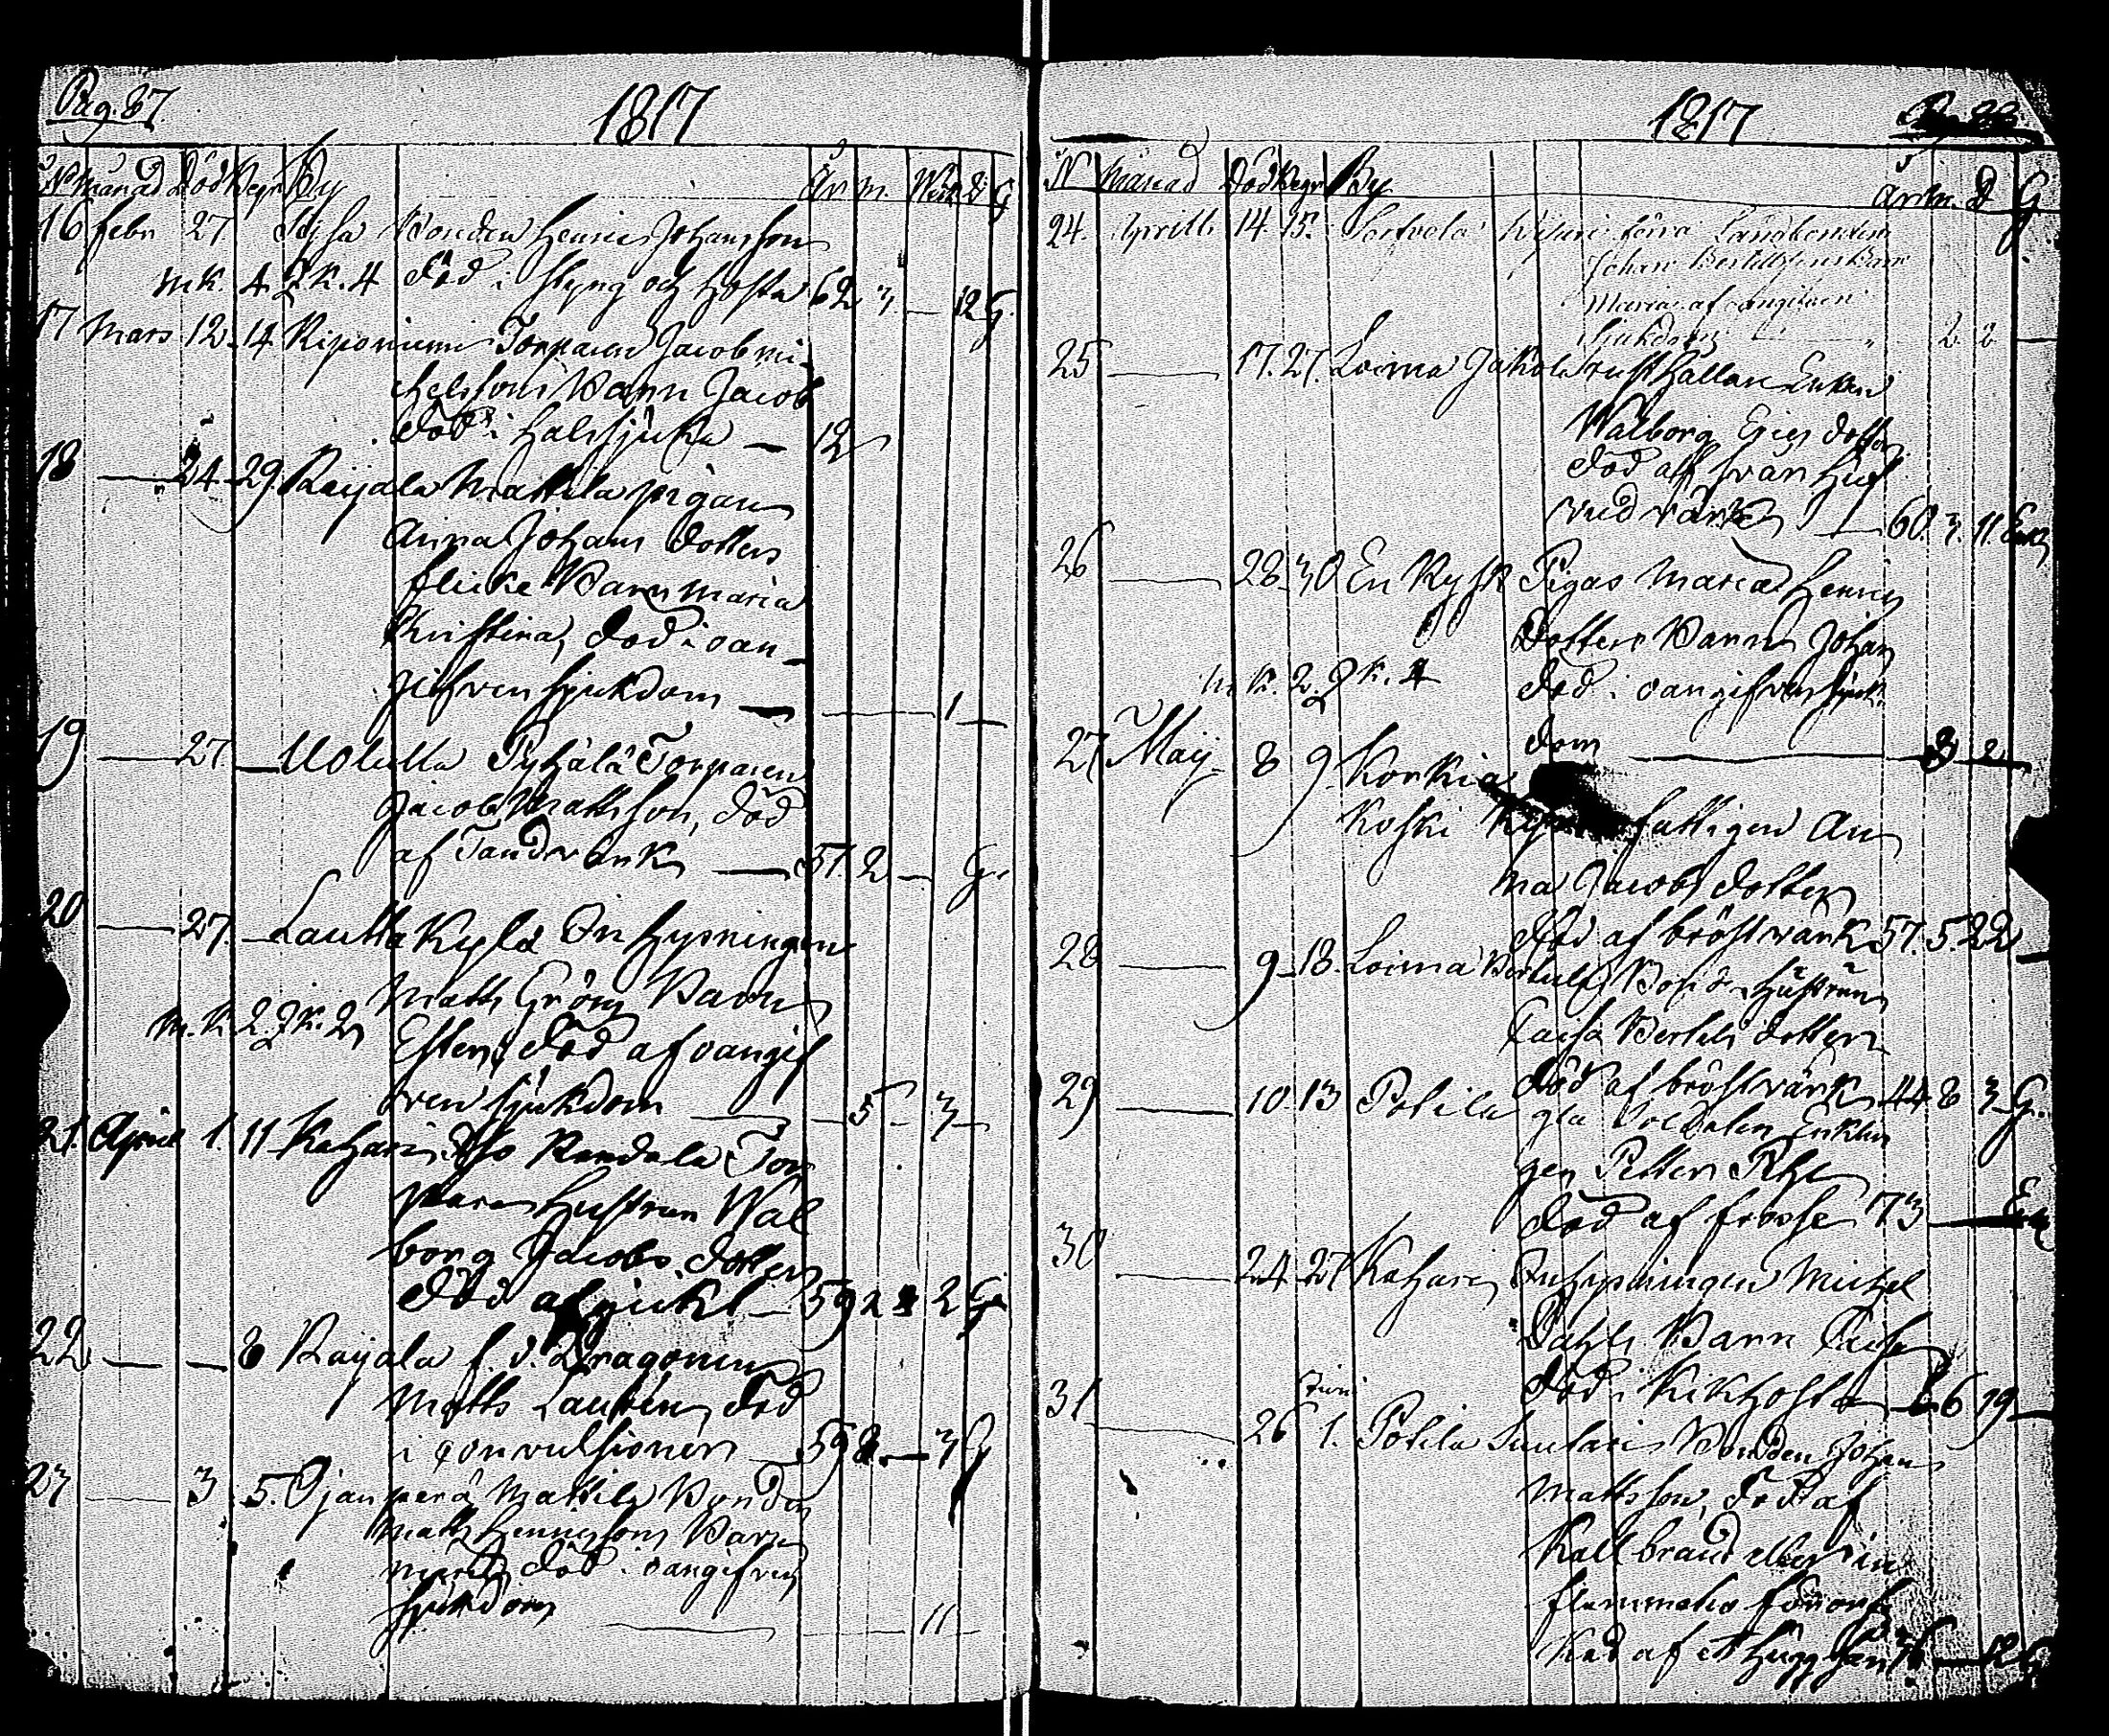 Pag. 87.
1817
N Månad Död Begr By År m. Weck d. G
16 febr 27 Bonden Henric Johansson
mk. 4 Qk. 4 död i styng och hosta 62 3 — 12 G.
17 Mars 12 14 Torparen Jacob Mi-
chelssons Barn Jacob
död i halssjuka — 12
18 — 24 29 Raijala Mattila pigan
Anna Johans dotters
flicke Barn Maria
Kristina, död i oan-
gifven sjukdom — 1 —
19 — 27 — Torparen
Jacob Mattsson, död
af Tandvärk — 51. 2 — G.
20 — 27. — Lautta Kylä Inhysningen
Matts Gröns Barn
m. k. 2 Qk. 2 Ester, död af oangif
ven sjukdom — 5 — 3 —
21. April 1. 11 Kojhari Tor
pare Hustrun Wal
borg Jacobs dotter
död af gickt — 59 2 2 G
22 — — 8 Raijala f. d. Dragonen
Matts Lautén, död
i convulsioner — 59 8 — 3 G
23 — 3. 5. Ojanperä Mattila Bonden
Matts Henricssons Barn
död i oangifven
sjukdom — 11 —
1817
N Månad Död Begr By År m. d G
24. Aprill 14. 15. förra Landbonden
Johan Bertillssons Barn
Maria af oangifven
sjukdom 2. 2 —
25 — 17. 27. Loima Jakola rusthållare Enkan
Walborg Erics dotter
död af svår huf
vudvärk — 60. 3. 11. Enk
26 — 28 30 En Kyso Pigas Maria Henrics
Dotters Barn Johan
m. k. 2. Qk. 4 död i oangifven sjuk-
dom — 3 2 —
27 Maij 8 9 Korkia
Koski fattigen An
na Jacobs dotter
död af bröstvärk 57. 5 22 —
28 — 9 18. Loima Hustrun
Caisa Bertils dotter
död af bröstvärk 44 8 3 G.
29 — 10 13 Pohila gla Soldaten Enklin
gen Petter
död af frossa 73 — Enk
30 — 24 27 Kojhari Inhysningen Michel
Dahls Barn Caisa
död i Kikhosta — 6 19 —
31 — 26 Juni 1. Pohila Bonden Johan
Mattsson, död af
Kallbrand eller in
flammation förorsa
kad af ett hugg